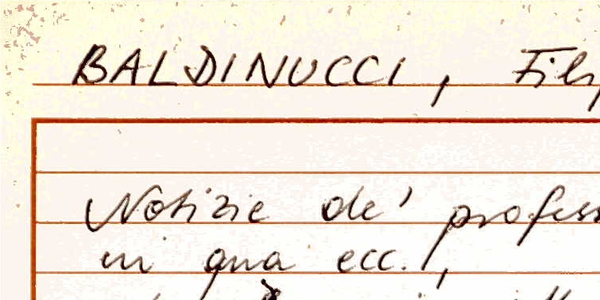 BALDINUCCI, Fili
Notizie de' profess
in qua ecc.,